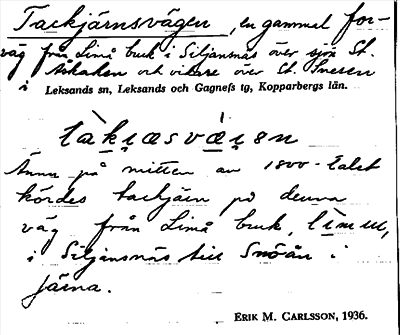 Tackjärnsvägen, en gammal for-
väg från Limå bruk i Siljansnäs över sjön St.
Acksjön och vidare över St. Snesen
i Leksands sn, Leksands och Gagnefs tg, Kopparbergs län.
Ännu på mitten av 1800-talet
kördes tackjärn på denna
väg från Limå bruk, lìmu,
i Siljansnäs till Snöån i
Järna.
ERIK M. CARLSSON, 1936.